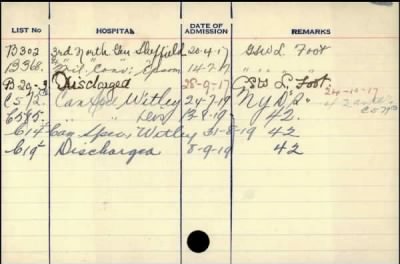 LIST No HOSPITAL DATE OF ADMISSION REMARKS
B302 3rd North Gen Sheffield 20-4-17 GSW L. Foot
B368. " Mil. Conv: Epsom 14-7-17 " " "
Discharged 28-9-17 GSW L. Foot
24-10-17
C512. Can Spec Witley 24-7-19 42
C585. " " Dev 13-8-19 42.
C614 Can Spec Witley 31-8-19 42
C619 Discharged 8-9-19 42